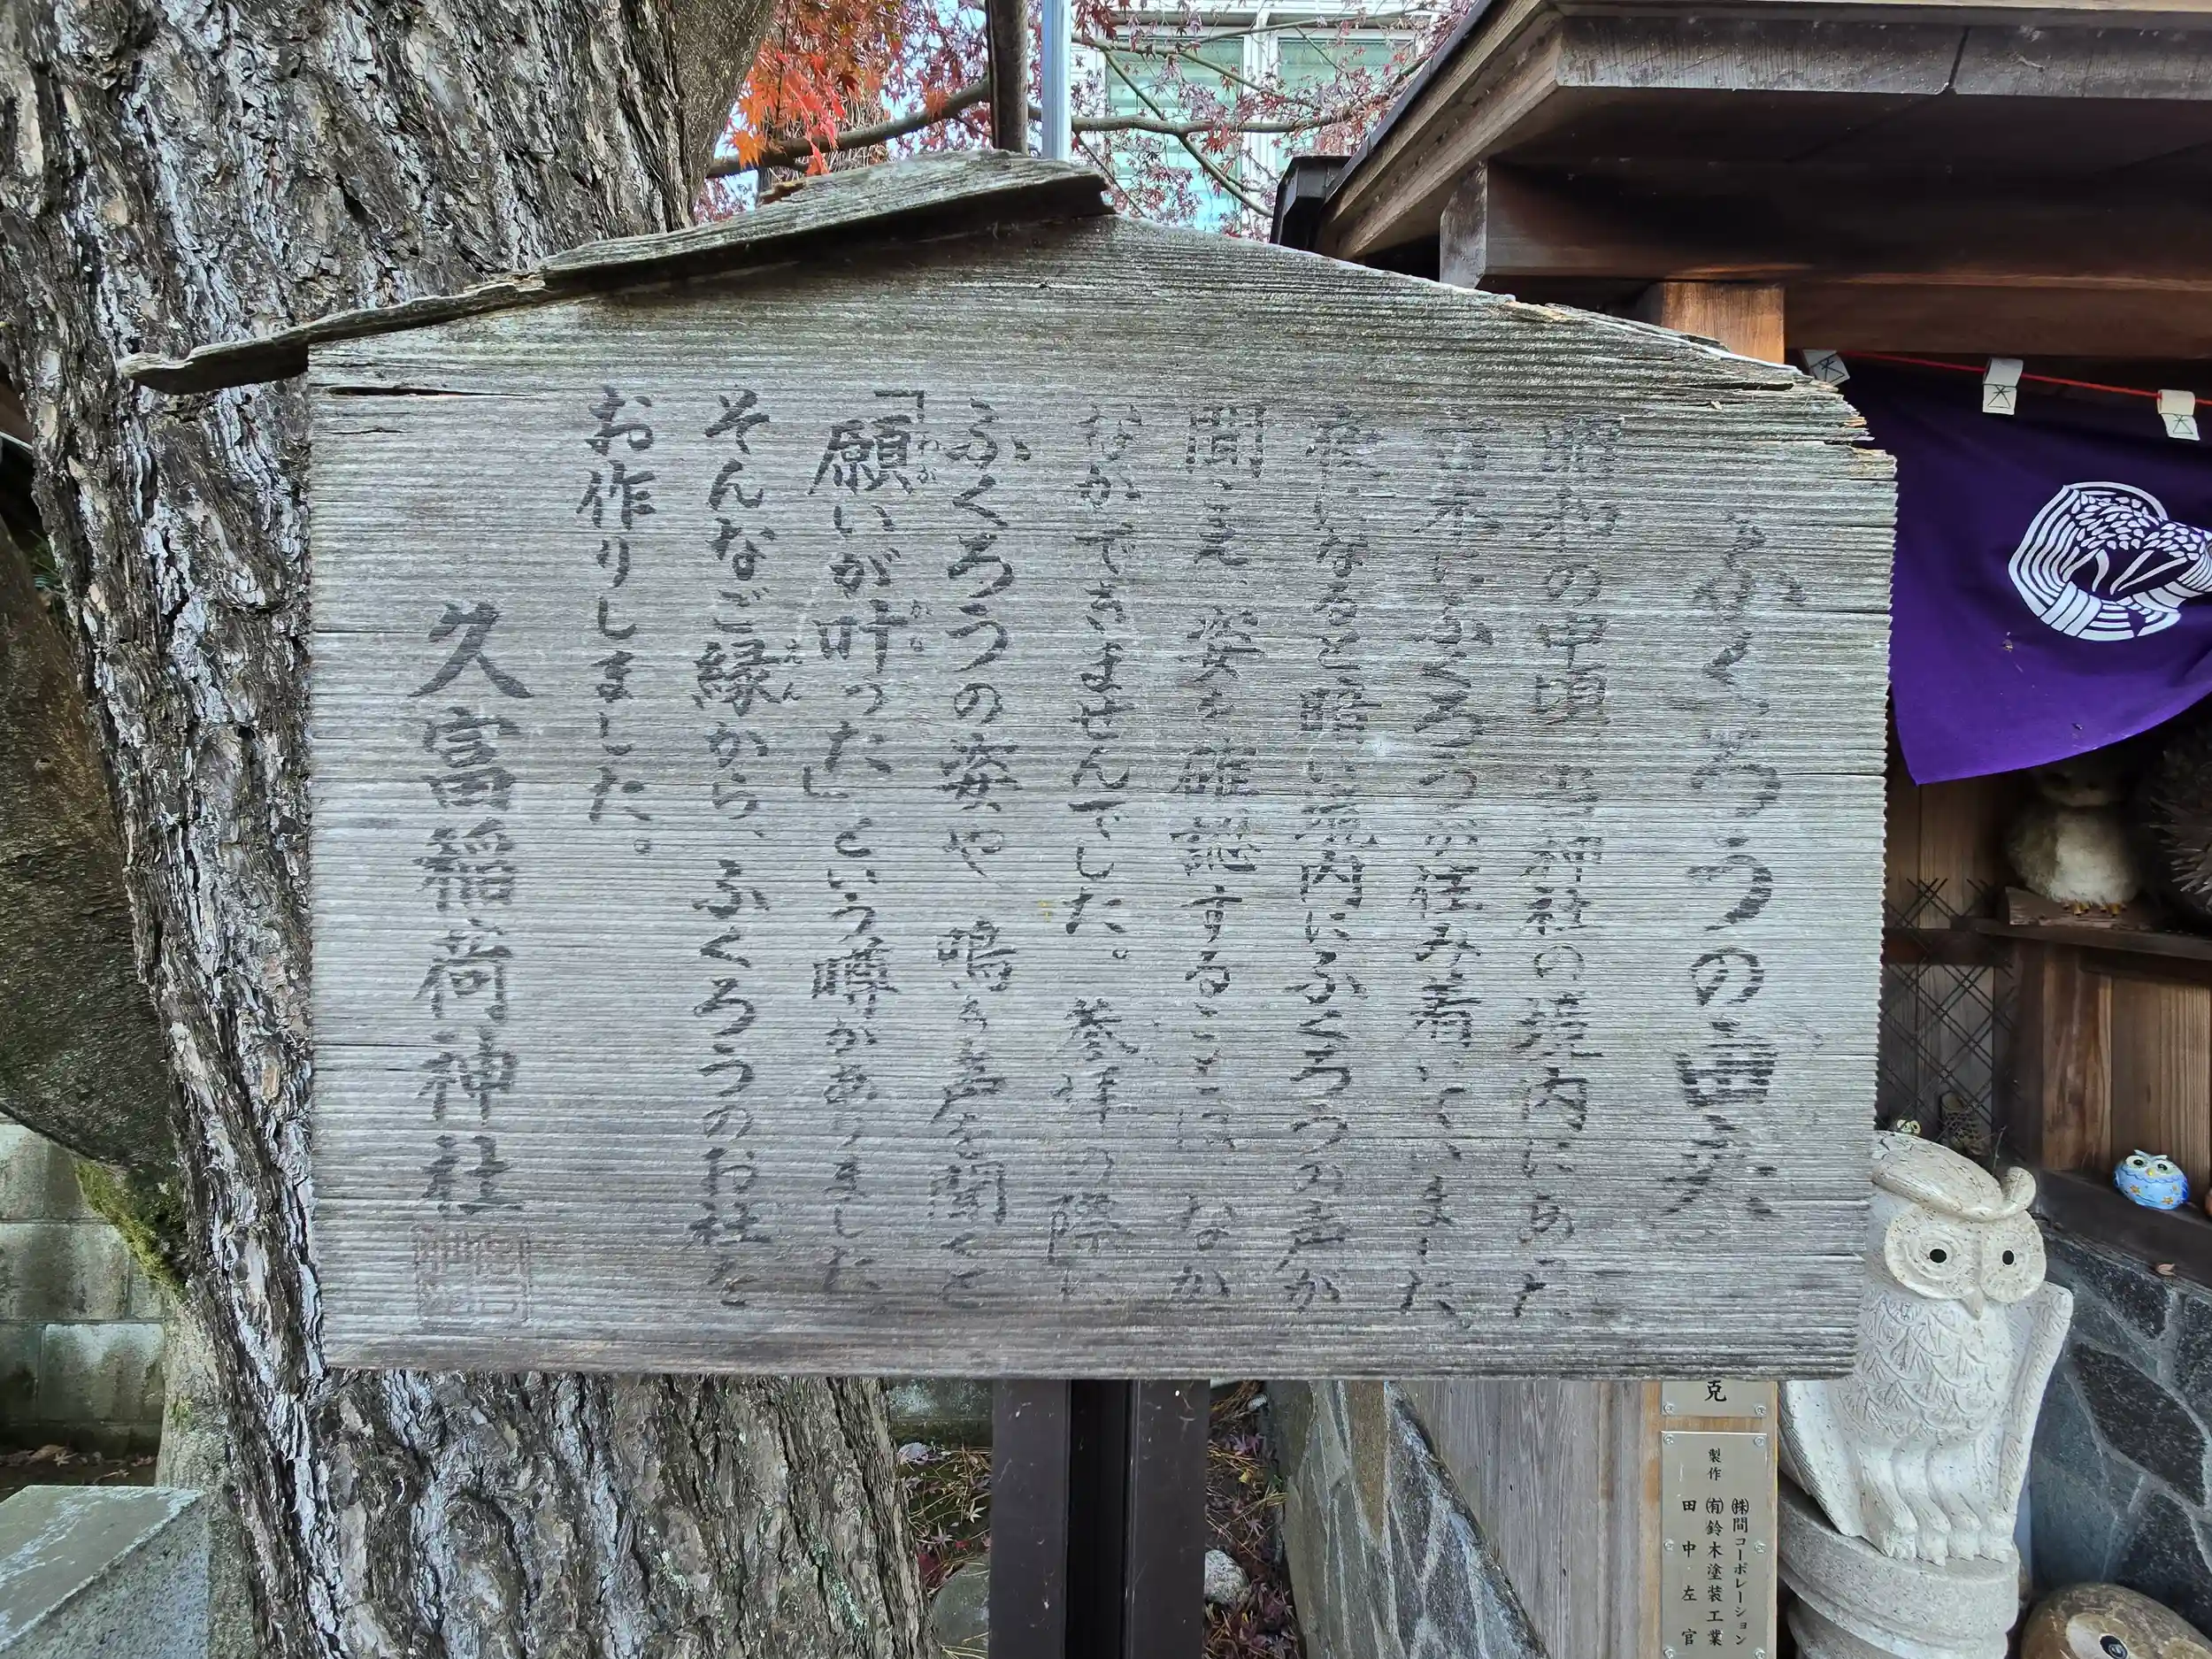 ふくろうの由来
昭和の中頃 当神社の境内にあった
古木にふくろうが住み着いていました。
夜になると暗い境内にふくろうの声が
聞こえ、姿を確認することは なか
なかできませんでした。参拝の際に
ふくろうの姿や 鳴き声を聞くと
「願いが叶った」という噂がありました
ねが
かな
そんなご縁から、ふくろうのお社を
えん
お作りしました。
久富稲荷神社
克
㈱間コーポレーション
製作 ㈲鈴木塗装工業
田中左官